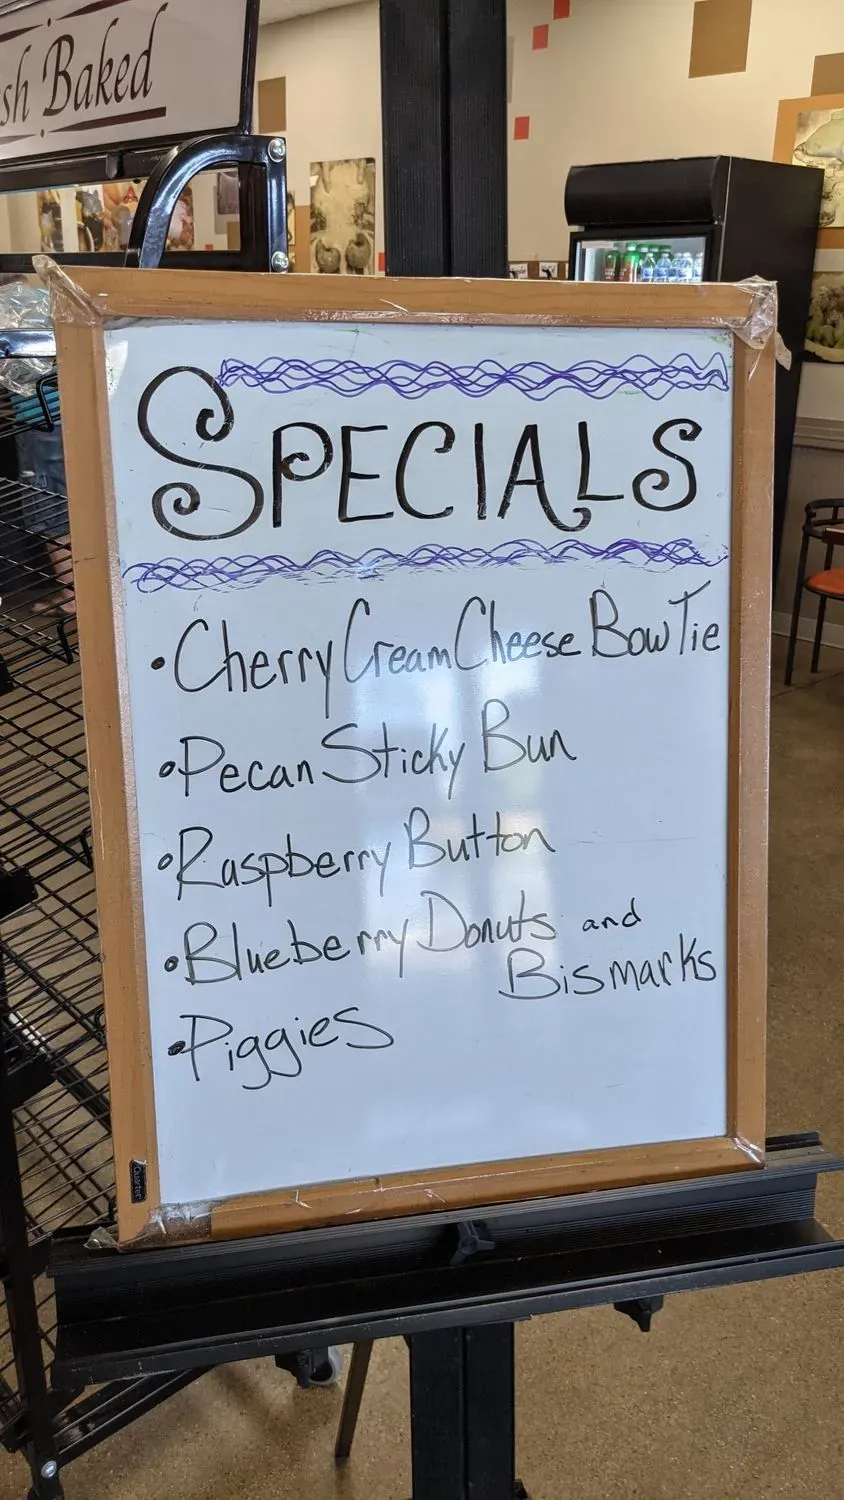 sh Baked
SPECIALS
• Cherry Cream Cheese Bow Tie
• Pecan Sticky Bun
• Raspberry Button
• Blueberry Donuts and
Bismarks
• Piggies
Quartet